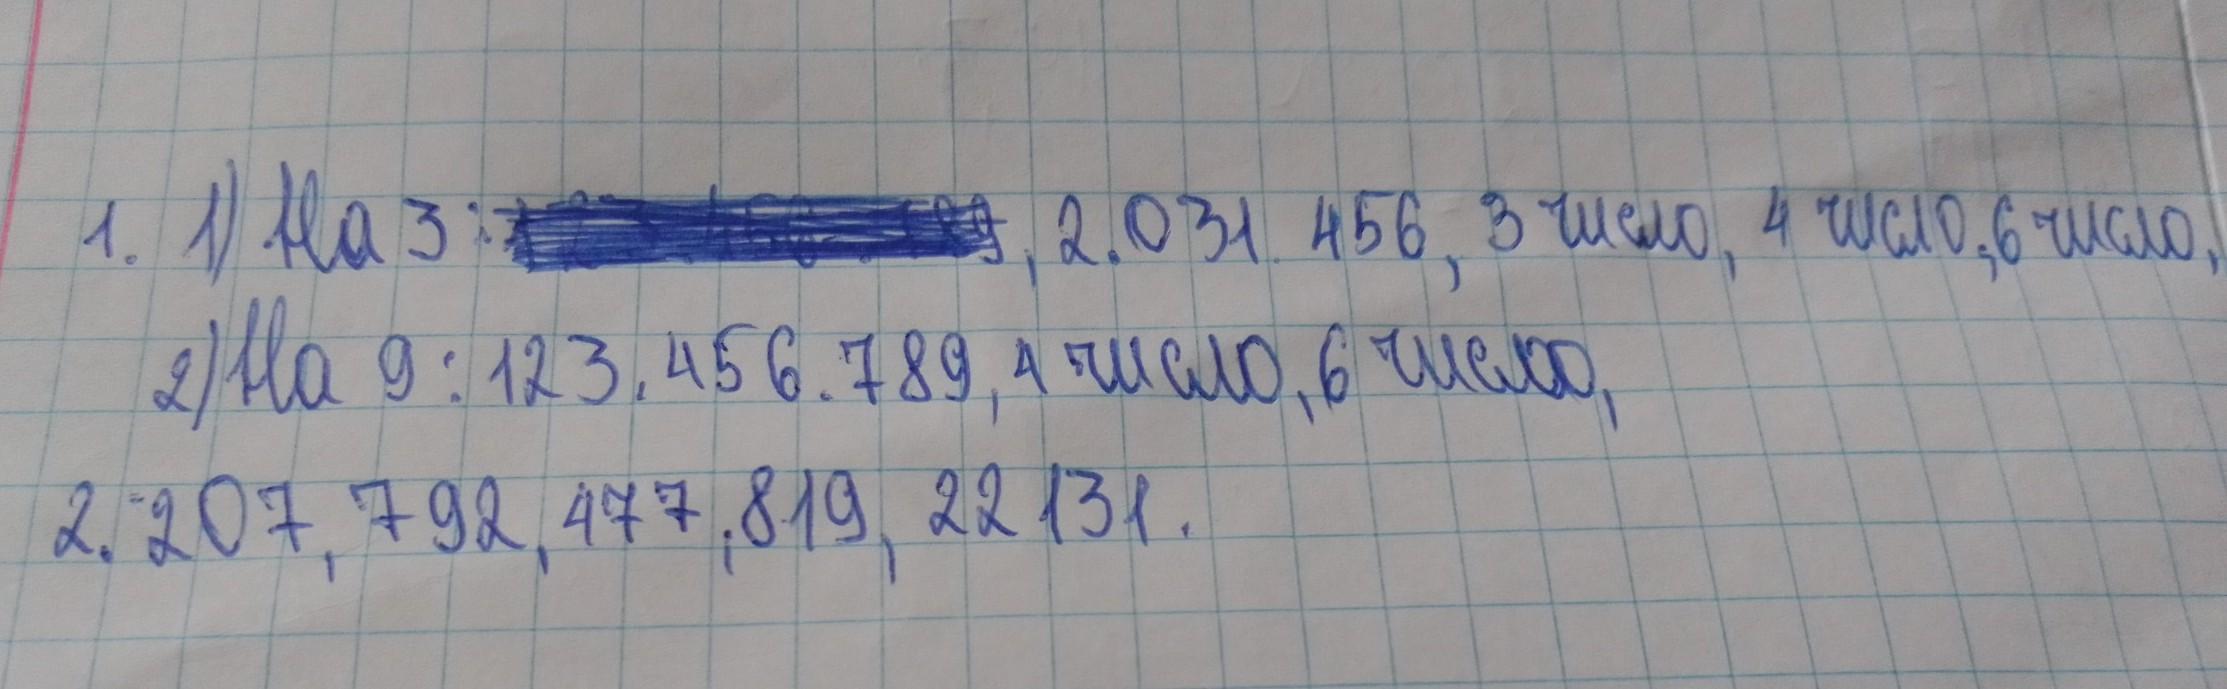 1. 1) На 3: , 2.031.456, 3 число, 4 число, 6 число,
2) На 9: 123.456.789, 4 число, 6 число,
2. 207, 792, 477, 819, 22131.